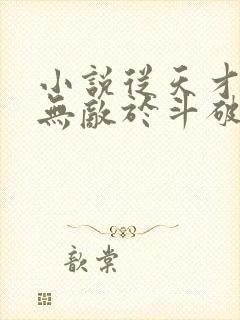 小說從天才
無敵於斗破
歆棠